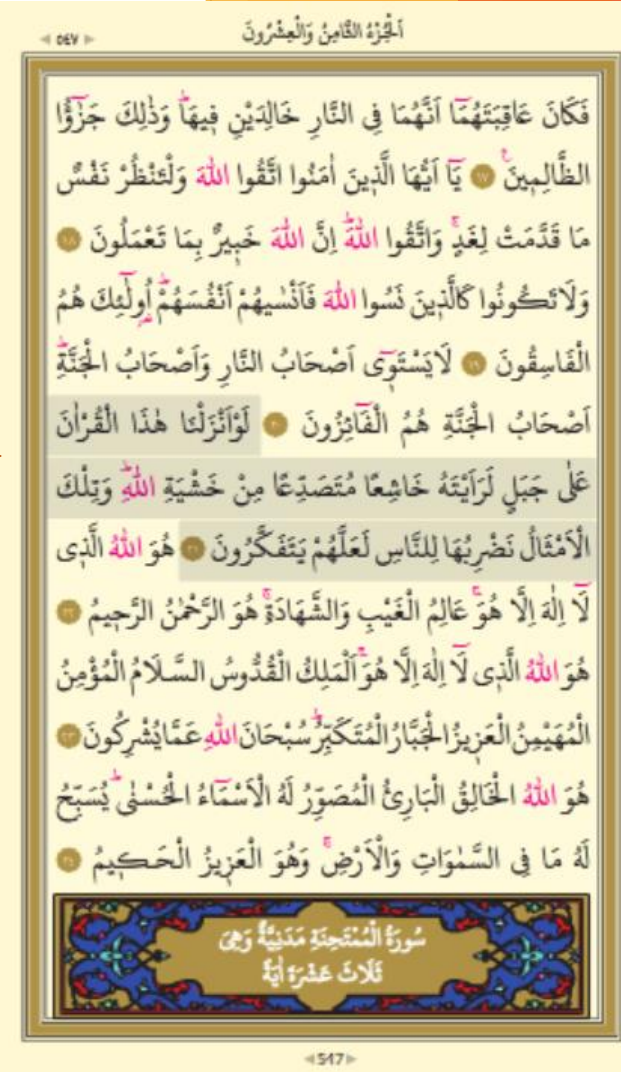 اَلْجُزْءُ الثَّامِنُ وَالْعِشْرُونَ
٥٤٧
فَكَانَ عَاقِبَتَهُمَٓا اَنَّهُمَا فِى النَّارِ خَالِدَيْنِ ف۪يهَاۜ وَذٰلِكَ جَزٰٓؤُا
الظَّالِم۪ينَ۟ ١٧ يَٓا اَيُّهَا الَّذ۪ينَ اٰمَنُوا اتَّقُوا اللّٰهَ وَلْتَنْظُرْ نَفْسٌ
مَا قَدَّمَتْ لِغَدٍۚ وَاتَّقُوا اللّٰهَۜ اِنَّ اللّٰهَ خَب۪يرٌ بِمَا تَعْمَلُونَ ١٨
وَلَا تَكُونُوا كَالَّذ۪ينَ نَسُوا اللّٰهَ فَاَنْسٰيهُمْ اَنْفُسَهُمْۜ اُو۬لٰٓئِكَ هُمُ
الْفَاسِقُونَ ١٩ لَا يَسْتَو۪ٓى اَصْحَابُ النَّارِ وَاَصْحَابُ الْجَنَّةِۜ
اَصْحَابُ الْجَنَّةِ هُمُ الْفَٓائِزُونَ ٢٠ لَوْ اَنْزَلْنَا هٰذَا الْقُرْاٰنَ
عَلٰى جَبَلٍ لَرَاَيْتَهُ خَاشِعًا مُتَصَدِّعًا مِنْ خَشْيَةِ اللّٰهِۜ وَتِلْكَ
الْاَمْثَالُ نَضْرِبُهَا لِلنَّاسِ لَعَلَّهُمْ يَتَفَكَّرُونَ ٢١ هُوَ اللّٰهُ الَّذ۪ى
لَٓا اِلٰهَ اِلَّا هُوَۚ عَالِمُ الْغَيْبِ وَالشَّهَادَةِۚ هُوَ الرَّحْمٰنُ الرَّح۪يمُ ٢٢
هُوَ اللّٰهُ الَّذ۪ى لَٓا اِلٰهَ اِلَّا هُوَۚ اَلْمَلِكُ الْقُدُّوسُ السَّلَامُ الْمُؤْمِنُ
الْمُهَيْمِنُ الْعَز۪يزُ الْجَبَّارُ الْمُتَكَبِّرُۜ سُبْحَانَ اللّٰهِ عَمَّا يُشْرِكُونَ ٢٣
هُوَ اللّٰهُ الْخَالِقُ الْبَارِئُ الْمُصَوِّرُ لَهُ الْاَسْمَٓاءُ الْحُسْنٰىۜ يُسَبِّحُ
لَهُ مَا فِى السَّمٰوَاتِ وَالْاَرْضِۚ وَهُوَ الْعَز۪يزُ الْحَك۪يمُ ٢٤
سُورَةُ الْمُمْتَحِنَةِ مَدَنِيَّةٌ وَهِىَ
ثَلَاثَ عَشْرَةَ اٰيَةً
547